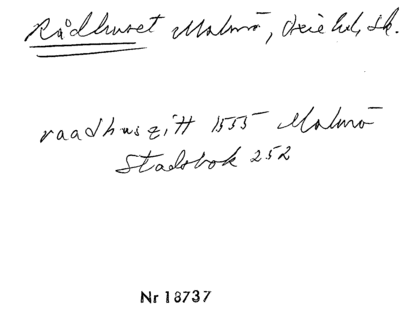 Rådhuset Malmö, Oxie hd, Sk.
raadhuszitt 1555 Malmö
Stadsbok 252
Nr 18737